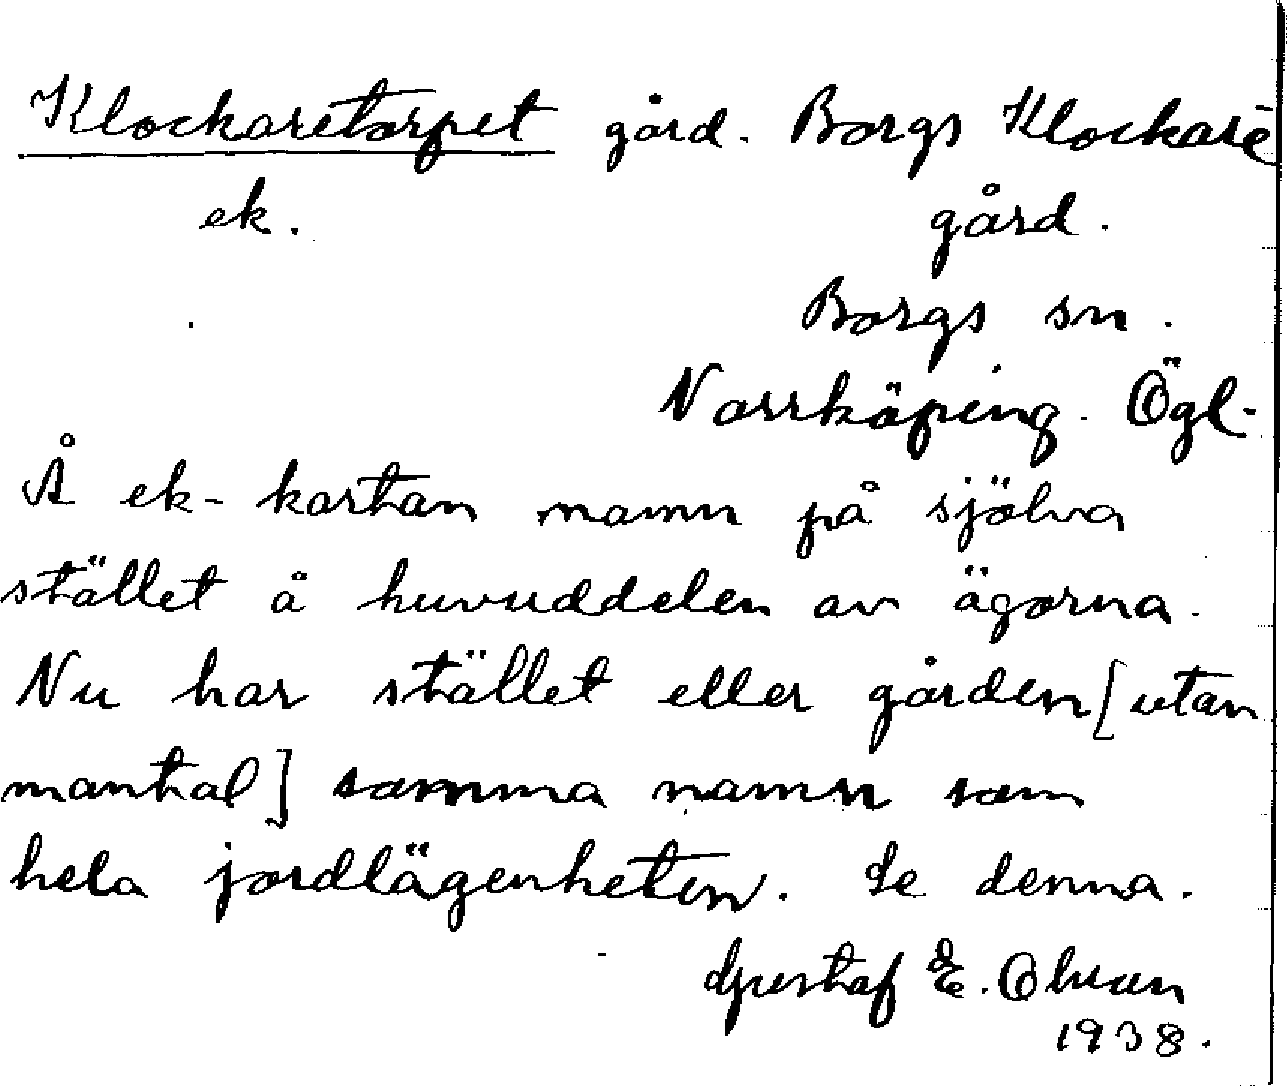 Klockaretorpet gård. Borgs Klockare-
ek. gård.
Borgs sn.
Norrköping. Ögl.
Å ek-kartan namn på själva
stället å huvuddelen av ägorna.
Nu har stället eller gården [utan
mantal] samma namn som
hela jordlägenheten. Se denna.
Gustaf E.
1938.